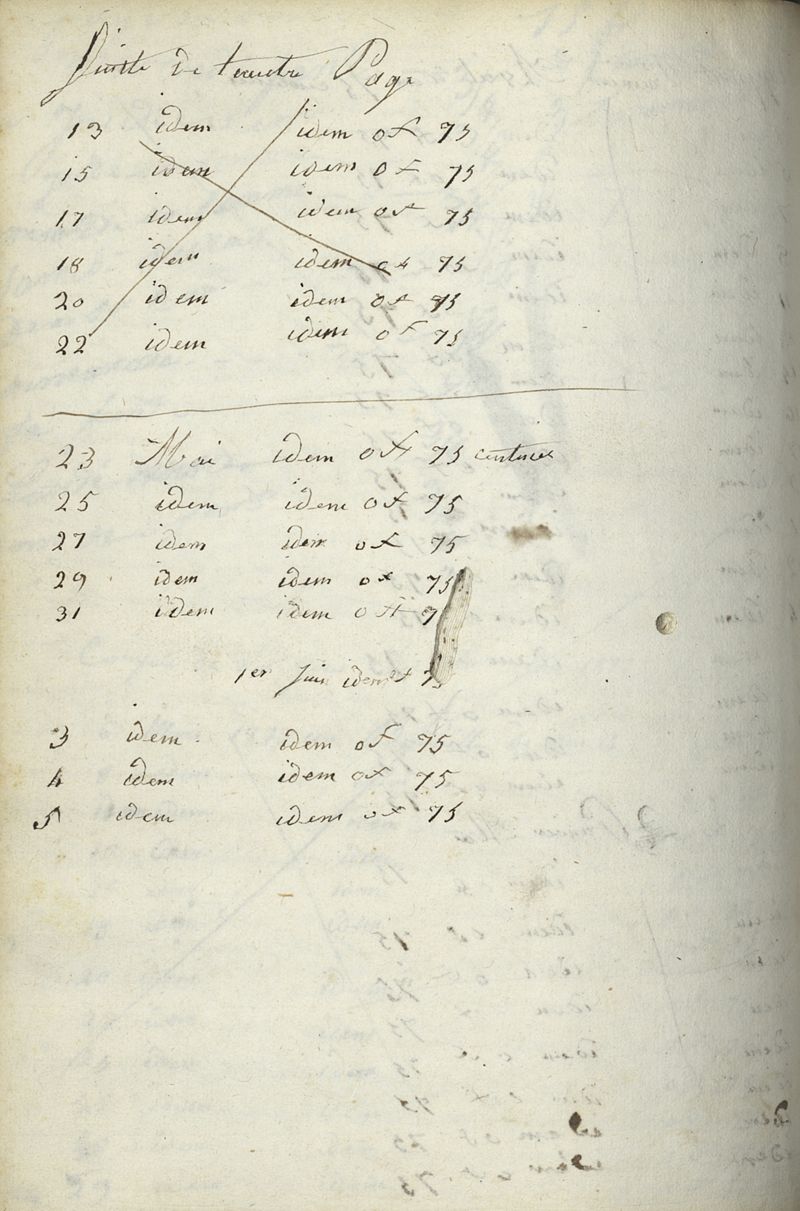 Suitte de l'autre Page
13 idem idem 0f 75
15 idem idem 0f 75
17 idem idem 0f 75
18 idem idem 0f 75
20 idem idem 0f 75
22 idem idem 0f 75
23 Mai idem 0f 75 centimes
25 idem idem 0f 75
27 idem idem 0f 75
29 idem idem 0f 75
31 idem idem 0f 7
1er Juin idem 0f 75
3 idem idem 0f 75
4 idem idem 0f 75
5 idem idem 0f 75